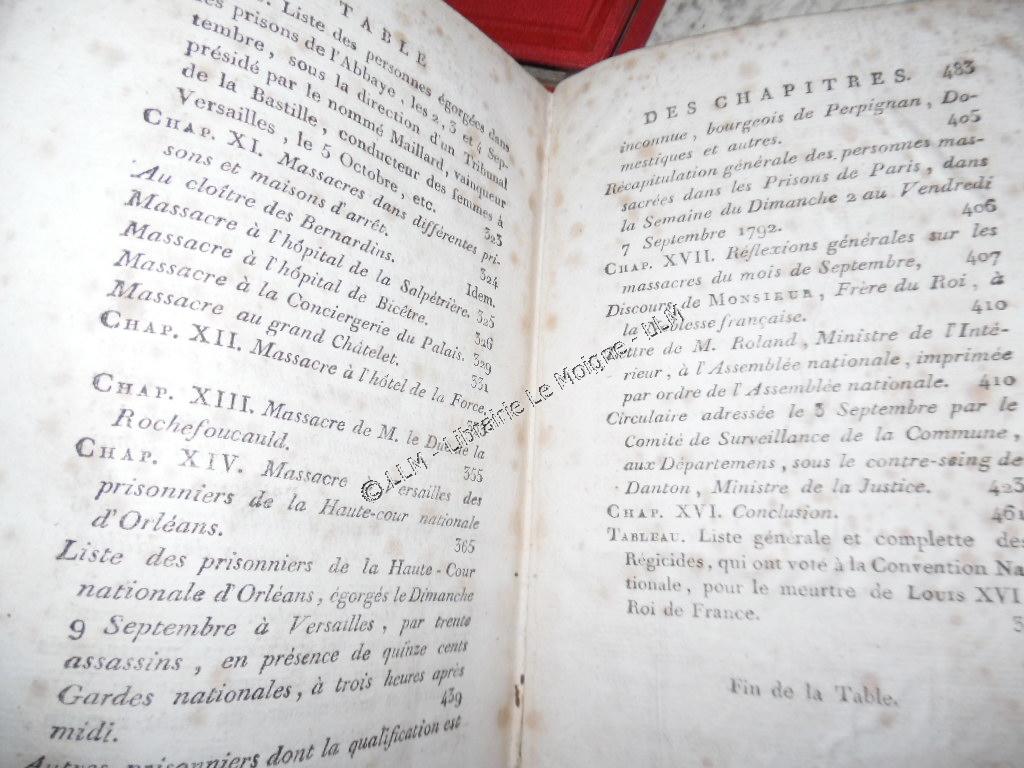 TABLE
Liste des personnes égorgées dans
les prisons de l'Abbaye, les 2, 3 et 4 Sep-
tembre, sous la direction d'un Tribunal
présidé par le nommé Maillard, vainqueur
de la Bastille, conducteur des femmes à
Versailles, le 5 Octobre, etc. 323
CHAP. XI. Massacres dans différentes pri-
sons et maisons d'arrêt. 324
Au cloître des Bernardins. Idem.
Massacre à l'hôpital de la Salpétrière. 325
Massacre à l'hôpital de Bicêtre. 326
Massacre à la Conciergerie du Palais. 329
Massacre au grand Châtelet. 331
CHAP. XII. Massacre à l'hôtel de la Force.
CHAP. XIII. Massacre de M. le Duc de la
Rochefoucauld. 355
CHAP. XIV. Massacre Versailles des
prisonniers de la Haute-cour nationale
d'Orléans. 365
Liste des prisonniers de la Haute-Cour
nationale d'Orléans, égorgés le Dimanche
9 Septembre à Versailles, par trente
assassins, en présence de quinze cents
Gardes nationales, à trois heures après
midi. 439
Autres prisonniers dont la qualification est
DES CHAPITRES. 483
inconnue, bourgeois de Perpignan, Do-
mestiques et autres. 405
Récapitulation générale des personnes mas-
sacrées dans les Prisons de Paris, dans
la Semaine du Dimanche 2 au Vendredi
7 Septembre 1792. 406
CHAP. XVII. Réflexions générales sur les
massacres du mois de Septembre, 407
Discours de MONSIEUR, Frère du Roi, à
la Noblesse française. 410
Lettre de M. Roland, Ministre de l'Inté-
rieur, à l'Assemblée nationale, imprimée
par ordre de l'Assemblée nationale. 410
Circulaire adressée le 3 Septembre par le
Comité de Surveillance de la Commune,
aux Départemens, sous le contre-seing de
Danton, Ministre de la Justice. 423
CHAP. XVI. Conclusion. 461
TABLEAU. Liste générale et complette des
Régicides, qui ont voté à la Convention Na-
tionale, pour le meurtre de Louis XVI
Roi de France.
Fin de la Table.
©JLLM - Librairie Le Moigne - LLM